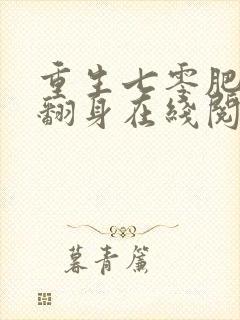 重生七零肥
翻身在线阅
暮青簾